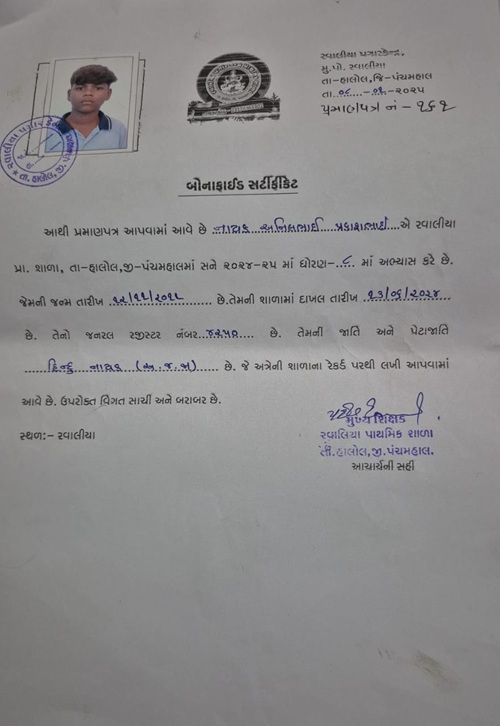 સ્વાલીયા પગારકેન્દ્ર.
મુ.પો. સ્વાલીયા
તા-હાલોલ,જિ-પંચમહાલ
તા.૦૮...-૦૧-૨૦૨૫
પ્રમાણપત્ર નં -૧૬૧
બોનાફાઈડ સર્ટીફીકેટ
આથી પ્રમાણપત્ર આપવામાં આવે છે નાયક અનિલભાઈ પ્રકાશભાઈ...એ રવાલીયા
પ્રા. શાળા, તા-હાલોલ,જી-પંચમહાલમાં સને ૨૦૨૪-૨૫ માં ધોરણ-.૮. માં અભ્યાસ કરે છે.
જેમની જન્મ તારીખ છે.તેમની શાળામાં દાખલ તારીખ ૧૩/૦૬/૨૦૨૪
છે. તેનો જનરલ રજીસ્ટર નંબર છે. તેમની જાતિ અને પેટાજાતિ
હિન્દુ નાયક (અ.જ.જા) છે. જે અત્રેની શાળાના રેકર્ડ પરથી લખી આપવામાં
આવે છે. ઉપરોક્ત વિગત સાચીં અને બરાબર છે.
સ્થળ:- રવાલીયા
મુખ્ય શિક્ષક
રવાલિયા પ્રાથમિક શાળા
તા.હાલોલ,જી.પંચમહાલ.
આચાર્યની સહી